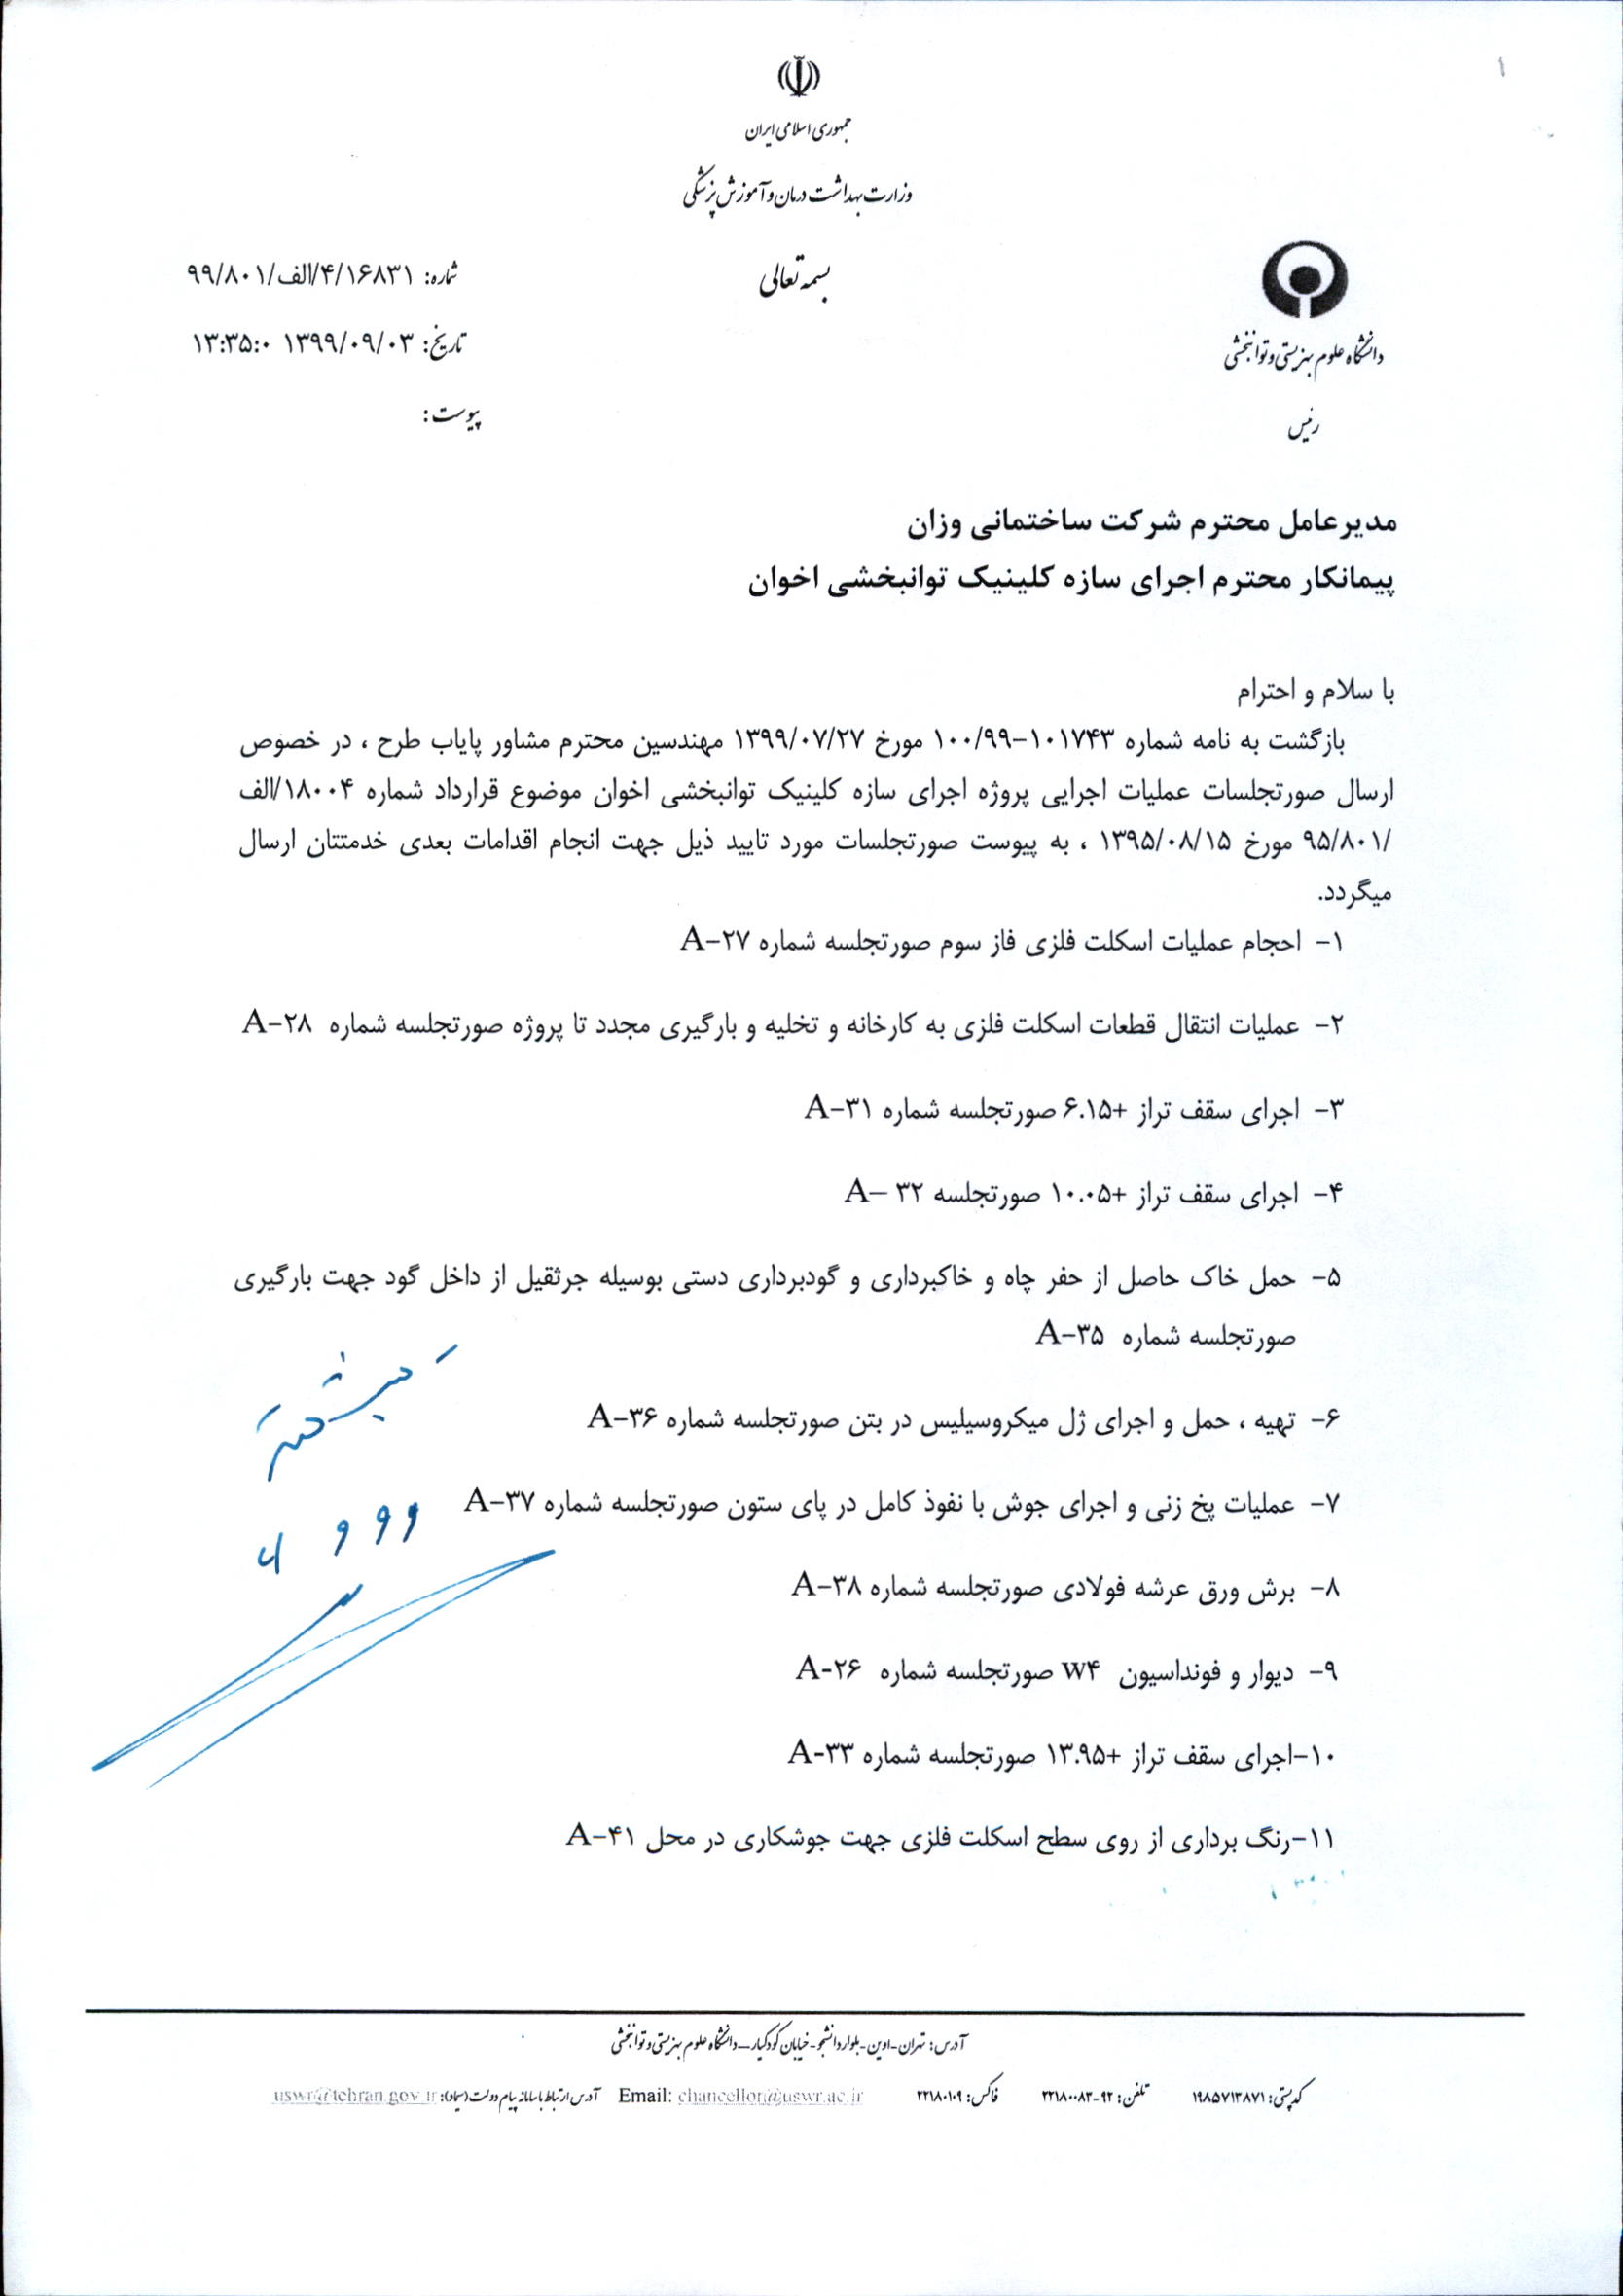 جمهوری اسلامی ایران
وزارت بهداشت درمان و آموزش پزشکی
بسمه تعالی
دانشگاه علوم بهزیستی و توانبخشی
رئیس
شماره: ۹۹/۸۰۱/الف/۴/۱۶۸۳۱
تاریخ: ۱۳۹۹/۰۹/۰۳ ۱۳:۳۵:۰
پیوست:
مدیرعامل محترم شرکت ساختمانی وزان
پیمانکار محترم اجرای سازه کلینیک توانبخشی اخوان
با سلام و احترام
بازگشت به نامه شماره ۱۰۱۷۴۳-۱۰۰/۹۹ مورخ ۱۳۹۹/۰۷/۲۷ مهندسین محترم مشاور پایاب طرح ، در خصوص
ارسال صورتجلسات عملیات اجرایی پروژه اجرای سازه کلینیک توانبخشی اخوان موضوع قرارداد شماره ۱۸۰۰۴/الف
/۹۵/۸۰۱ مورخ ۱۳۹۵/۰۸/۱۵ ، به پیوست صورتجلسات مورد تایید ذیل جهت انجام اقدامات بعدی خدمتتان ارسال
میگردد.
۱- احجام عملیات اسکلت فلزی فاز سوم صورتجلسه شماره A-۲۷
۲- عملیات انتقال قطعات اسکلت فلزی به کارخانه و تخلیه و بارگیری مجدد تا پروژه صورتجلسه شماره A-۲۸
۳- اجرای سقف تراز +۶.۱۵ صورتجلسه شماره A-۳۱
۴- اجرای سقف تراز +۱۰.۰۵ صورتجلسه A- ۳۲
۵- حمل خاک حاصل از حفر چاه و خاکبرداری و گودبرداری دستی بوسیله جرثقیل از داخل گود جهت بارگیری
صورتجلسه شماره A-۳۵
۶- تهیه ، حمل و اجرای ژل میکروسیلیس در بتن صورتجلسه شماره A-۳۶
۷- عملیات پخ زنی و اجرای جوش با نفوذ کامل در پای ستون صورتجلسه شماره A-۳۷
۸- برش ورق عرشه فولادی صورتجلسه شماره A-۳۸
۹- دیوار و فونداسیون W۴ صورتجلسه شماره A-۲۶
۱۰-اجرای سقف تراز +۱۳.۹۵ صورتجلسه شماره A-۳۳
۱۱-رنگ برداری از روی سطح اسکلت فلزی جهت جوشکاری در محل A-۴۱
آدرس: تهران-اوین-بلوار دانشجو-خیابان کودکیار-دانشگاه علوم بهزیستی و توانبخشی
کدپستی: ۱۹۸۵۷۱۳۸۷۱ تلفن: ۹۲-۲۲۱۸۰۰۸۳ فاکس: ۲۲۱۸۰۱۰۹ Email: chancellor@uswr.ac.ir آدرس ارتباط با سامانه پیام دولت (سپاد): uswr@tehran.gov.ir